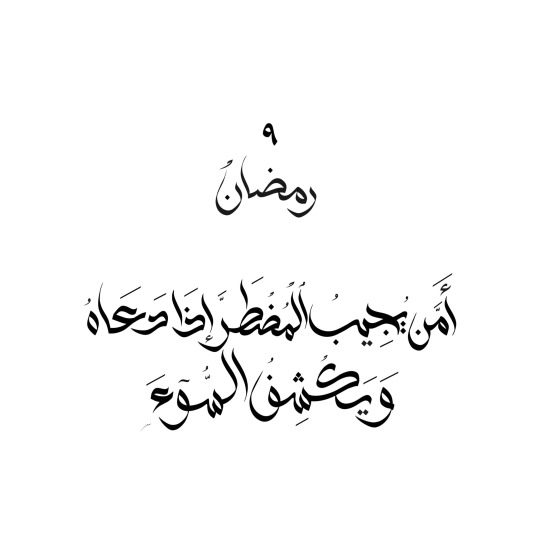 ٩
رمضان
أَمَّن يُجِيبُ ٱلْمُضْطَرَّ إِذَا دَعَاهُ
وَيَكْشِفُ السُّوٓءَ